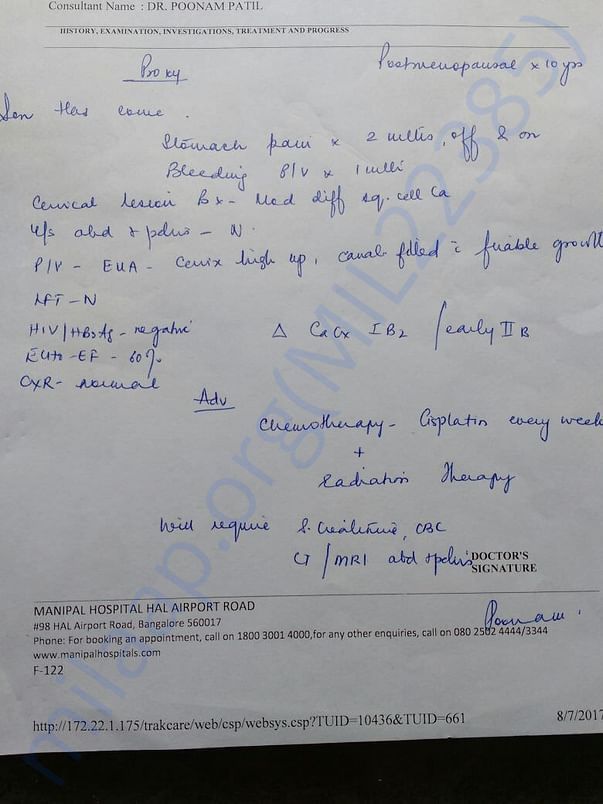 Consultant Name : DR. POONAM PATIL
HISTORY, EXAMINATION, INVESTIGATIONS, TREATMENT AND PROGRESS
Proxy
Postmenopausal x 10 yrs
Son Has come.
Stomach pain x 2 mths, off & on
Bleeding P/V x 1 mth
Cervical lesion Bx - Mod diff sq. cell Ca
U/s abd + pelvis - N.
P/V - EUA - Cervix high up, canal filled c̄ friable growth
LFT - N
HIV/HBsAg - negative
Δ CaCx IB2 / early IIB
Echo - EF - 60%
CXR - normal
Adv
Chemotherapy - Cisplatin every week
+
Radiation Therapy
Will require S. Creatinine, CBC
CT/MRI abd + pelvis
DOCTOR'S
SIGNATURE
Poonam
MANIPAL HOSPITAL HAL AIRPORT ROAD
#98 HAL Airport Road, Bangalore 560017
Phone: For booking an appointment, call on 1800 3001 4000,for any other enquiries, call on 080 2502 4444/3344
www.manipalhospitals.com
F-122
http://172.22.1.175/trakcare/web/csp/websys.csp?TUID=10436&TUID=661
8/7/2017
milaap.org(MIL22385)